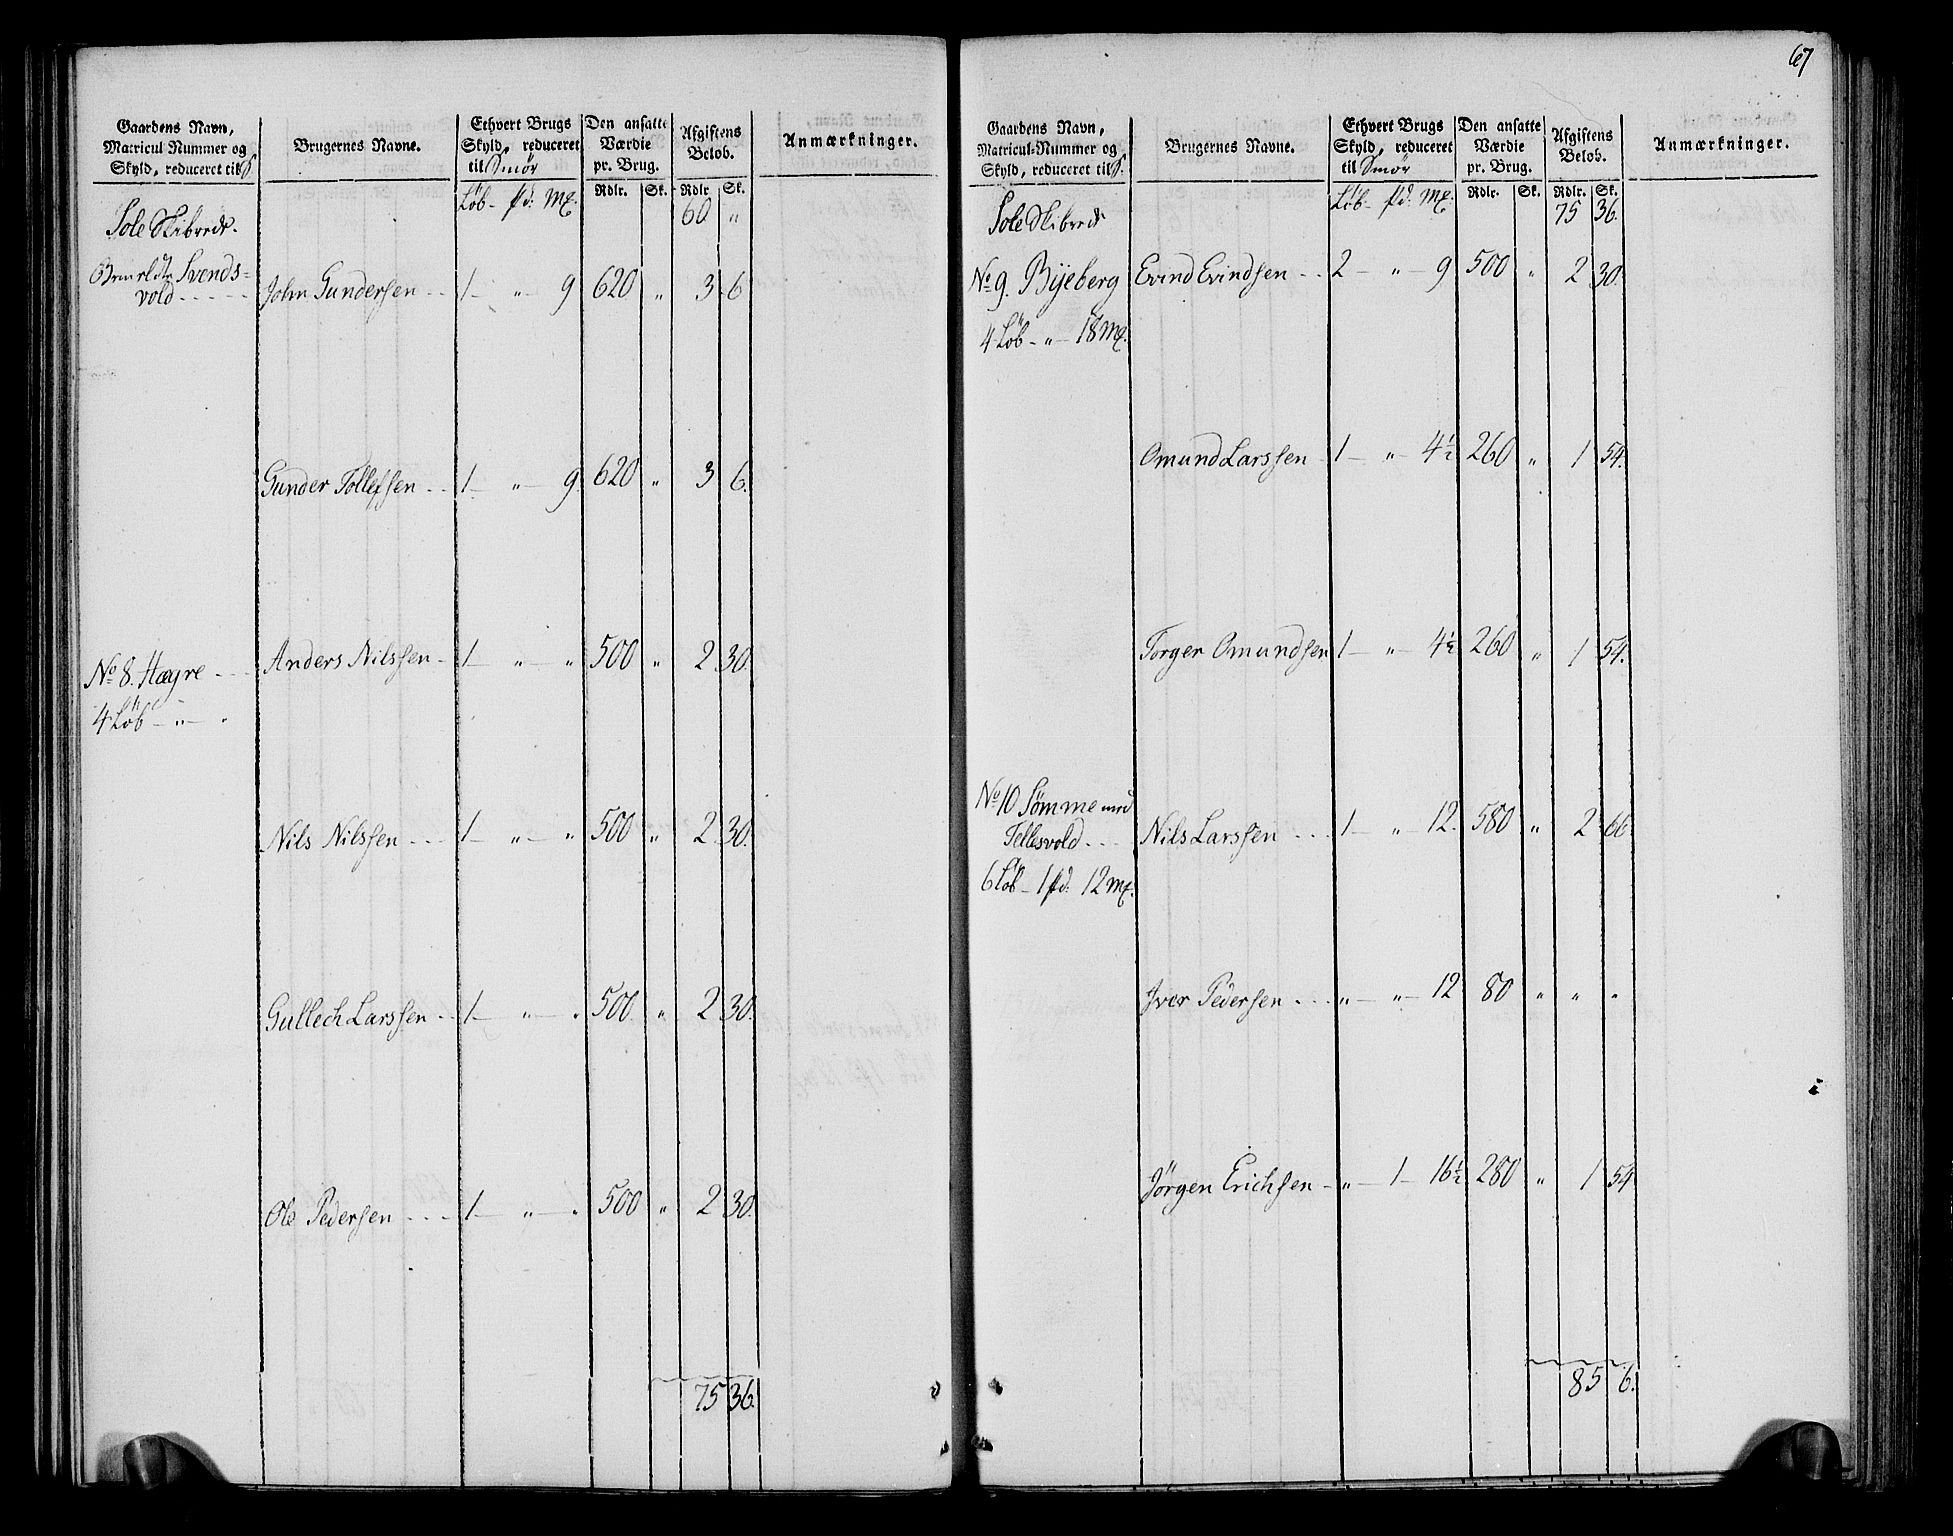 Gaardens Navn, Matricul Nummer og Skyld, reduceret til | Brugernes Navne. | Ethvert Brugs Skyld, reduceret til Smör | Den ansatte Værdie pr. Brug. | Afgiftens Beløb. | Anmærkninger.
Löb - pd: Mk. | Rdlr. | Sk. | Rdlr | Sk.
Sole Skibrede. 60 "
Svends=
vold - - - - - John Gundersen - - 1 - " - 9 620 " 3 6
Gunder Tollefsen - - 1 - " - 9. 620 " 3 6.
No 8. Hægre - - - Anders Nilssen - 1 - " - " 500 " 2 30.
4 Löb - " - "
Nils Nilssen - - - 1 - " - " 500 " 2 30.
Gullech Larssen - - 1 - " - " 500 " 2 30.
Ole Pedersen - - - 1 - " - " 500 " 2 30.
75 36.
67
Gaardens Navn, Matricul-Nummer og Skyld, reduceret til | Brugernes Navne. | Ethvert Brugs Skyld, reduceret til Smör | Den ansatte Værdie pr. Brug. | Afgiftens Beløb. | Anmærkninger.
Löb - pd: Mk. | Rdlr. | Sk. | Rdlr. | Sk.
Sole Skibrede 75 36.
No 9. Byeberg Evind Evindsen - - 2 - " - 9 500 " 2 30.
4 Löb - " - 18 Mk.
Omund Larssen - 1 - " - 4½ 260 " 1 54.
Torger Omundsen 1 - " - 4½ 260 " 1 54.
No 10 Sömme med
Tellesvold - - - Nils Larssen - - - 1 - " - 12. 580 " 2 66
6 Löb - 1 pd: 12 Mk.
Iver Pedersen - - - " - " - 12 80 " " "
Jörgen Erichsen - " - 1 - 16½ 280 " 1 54
85 6.